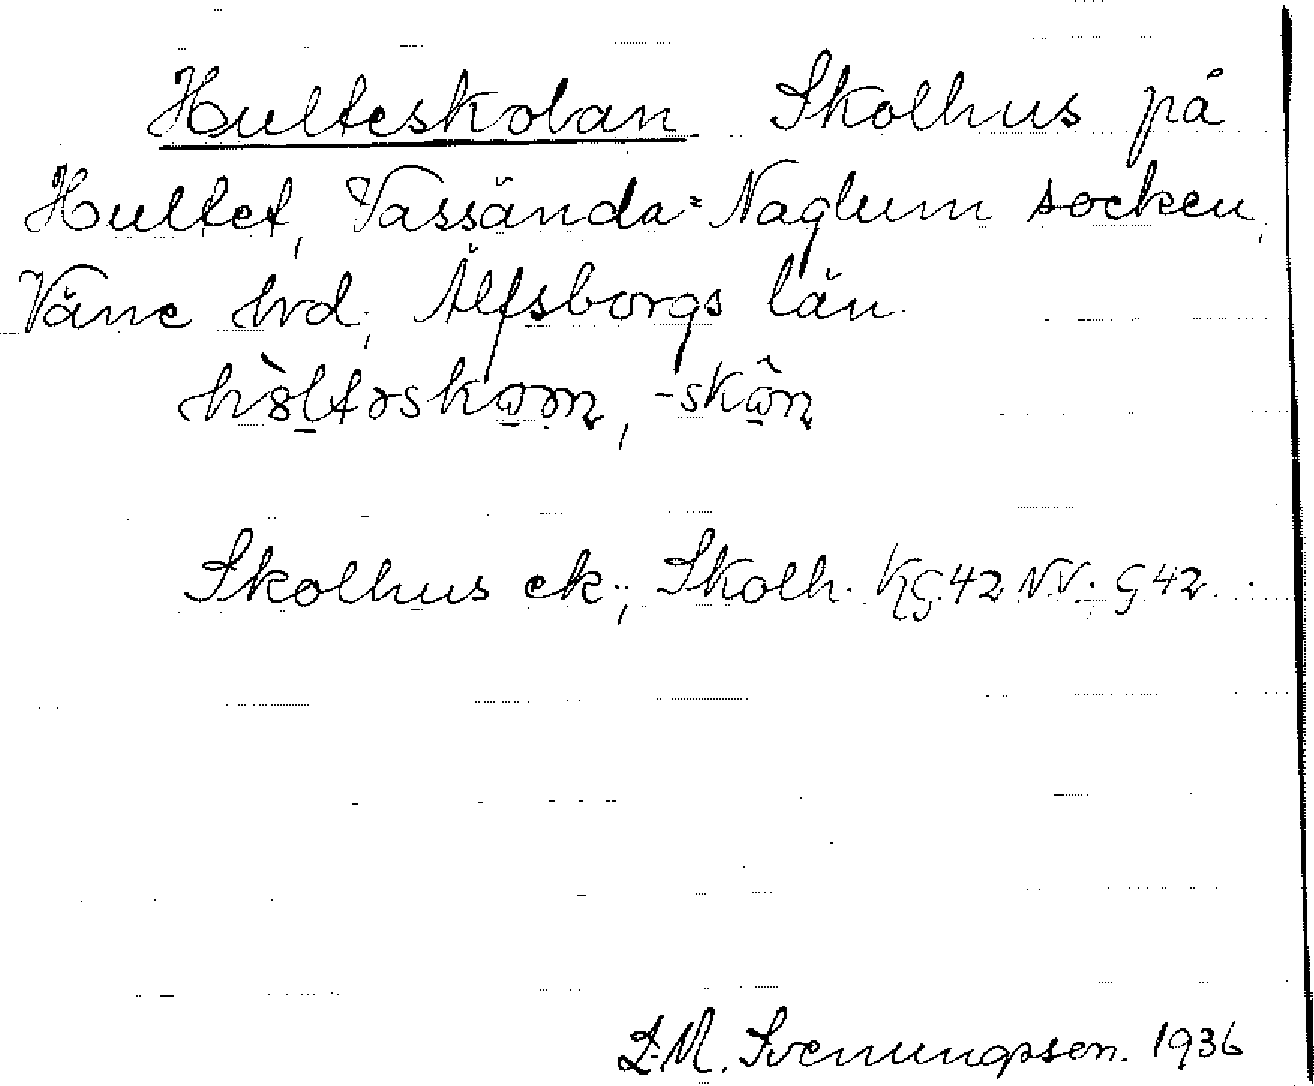 Hulteskolan Skolhus på
Hultet, Vassända-Naglum socken,
Väne hrd, Älfsborgs län.
Skolhus ek; Skolh. KG42 NV. G42.
Svenungsson. 1936